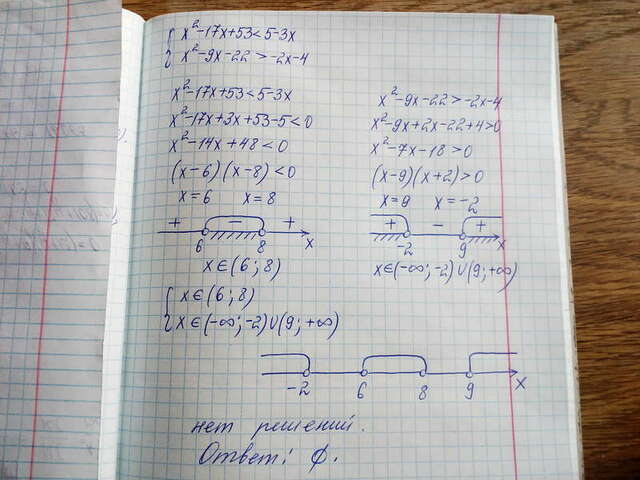 { x²-17x+53<5-3x
{ x²-9x-22>-2x-4
x²-17x+53<5-3x
x²-17x+3x+53-5<0
x²-14x+48<0
(x-6)(x-8)<0
x=6 x=8
+ - +
6 8 x
x∈(6;8)
x²-9x-22>-2x-4
x²-9x+2x-22+4>0
x²-7x-18>0
(x-9)(x+2)>0
x=9 x=-2
+ - +
-2 9 x
x∈(-∞;-2)∪(9;+∞)
{ x∈(6;8)
{ x∈(-∞;-2)∪(9;+∞)
-2 6 8 9 x
нет решений.
Ответ: ∅.